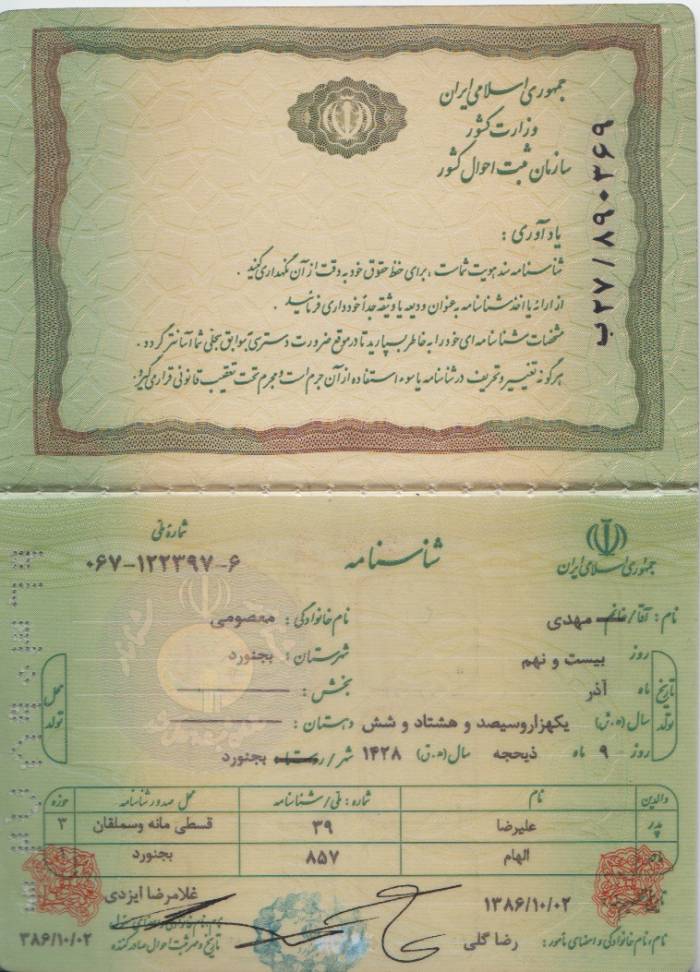 جمهوری اسلامی ایران
وزارت کشور
سازمان ثبت احوال کشور
ب۲۷/۸۹۰۳۶۹
یادآوری :
شناسنامه سند هویت شماست ، برای حفظ حقوق خود به دقت از آن نگهداری کنید .
از ارائه یا اخذ شناسنامه به عنوان ودیعه یا وثیقه جداً خودداری فرمائید .
مشخصات شناسنامه ای خود را به خاطر بسپارید تا در موقع ضرورت دسترسی به سوابق سجلی شما آسانتر گردد .
هرگونه تغییر و تحریف در شناسنامه یا سوء استفاده از آن جرم است و مجرم تحت تعقیب قانونی قرار می گیرد .
جمهوری اسلامی ایران
شناسنامه
شماره ملی
۰۶۷-۱۲۲۳۹۷-۶
نام : آقا/خانم مهدی نام خانوادگی : معصومی
تاریخ تولد
روز بیست و نهم شهرستان : بجنورد
ماه آذر بخش :
سال (ه.ش) یکهزاروسیصد و هشتاد و شش دهستان :
روز ۹ ماه ذیحجه سال (ه.ق) ۱۴۲۸ شهر/روستا : بجنورد
محل تولد
والدین نام شماره : ملی/شناسنامه محل صدور شناسنامه حوزه
پدر علیرضا ۳۹ قسطی مانه وسملقان ۳
مادر الهام ۸۵۷ بجنورد
۱۳۸۶/۱۰/۰۲ غلامرضا ایزدی
نام، نام خانوادگی و امضای مامور : رضا گلی
تاریخ و مهر ثبت احوال صادر کننده
۳۸۶/۱۰/۰۲